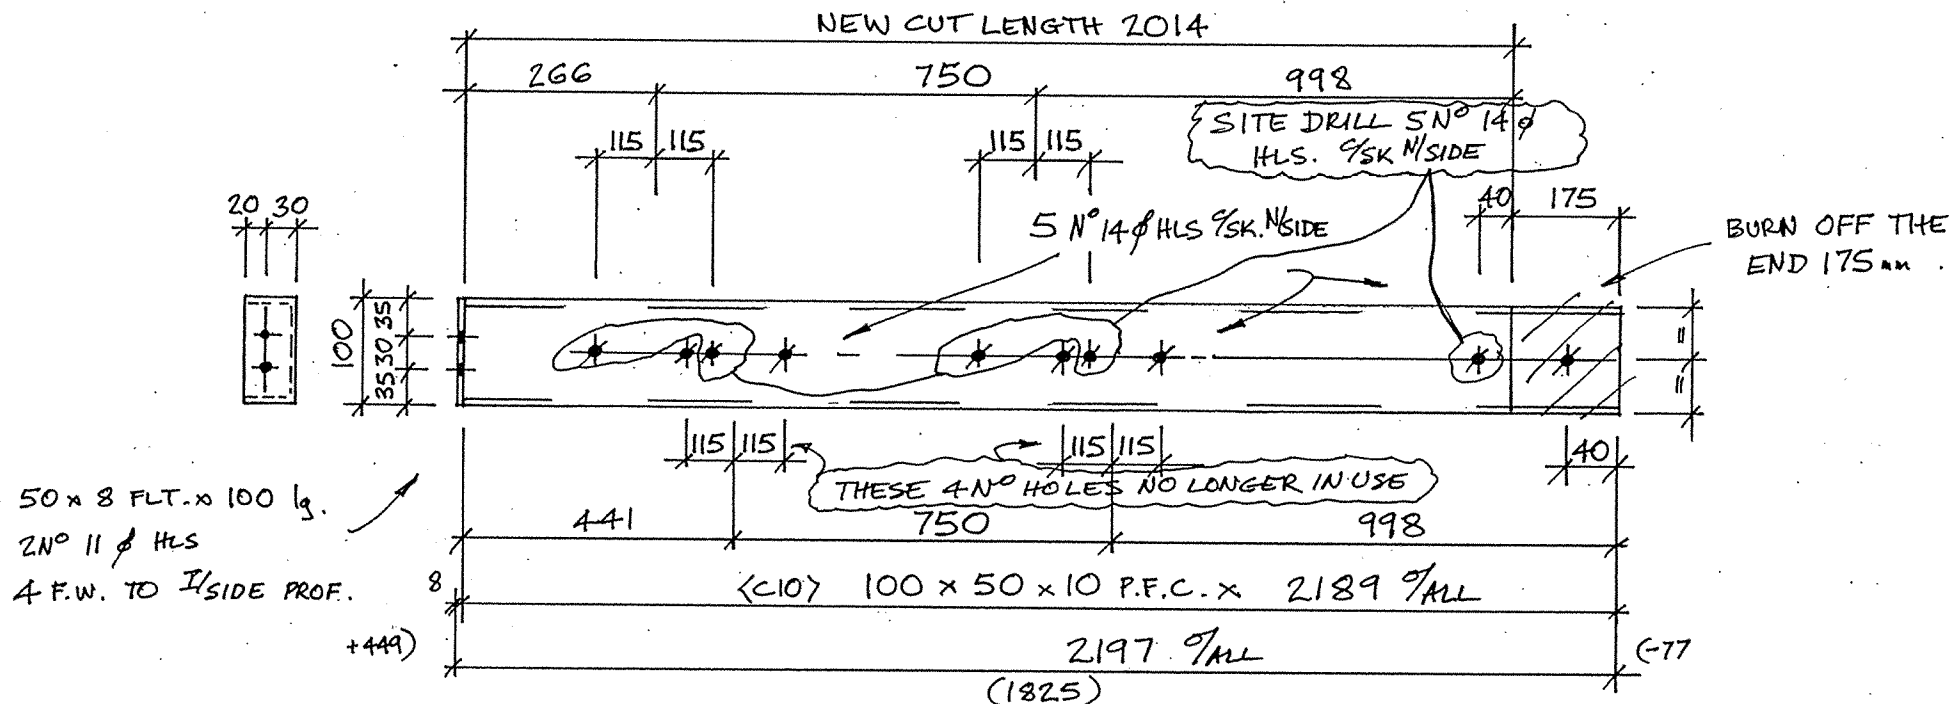 NEW CUT LENGTH 2014
266 750 998
SITE DRILL 5 Nº 14 ø
HLS. C/SK N/SIDE
115 115 115 115
20 30
40 175
5 Nº 14 ø HLS C/SK. N/SIDE
BURN OFF THE
END 175 mm.
100
35 30 35
" "
115 115 115 115 40
THESE 4 Nº HOLES NO LONGER IN USE
50 x 8 FLT. x 100 lg.
2Nº 11 ø HLS
4 F.W. TO I/SIDE PROF.
441 750 998
8
<C10> 100 x 50 x 10 P.F.C. x 2189 O/ALL
+449)
2197 O/ALL
(-77
(1825)